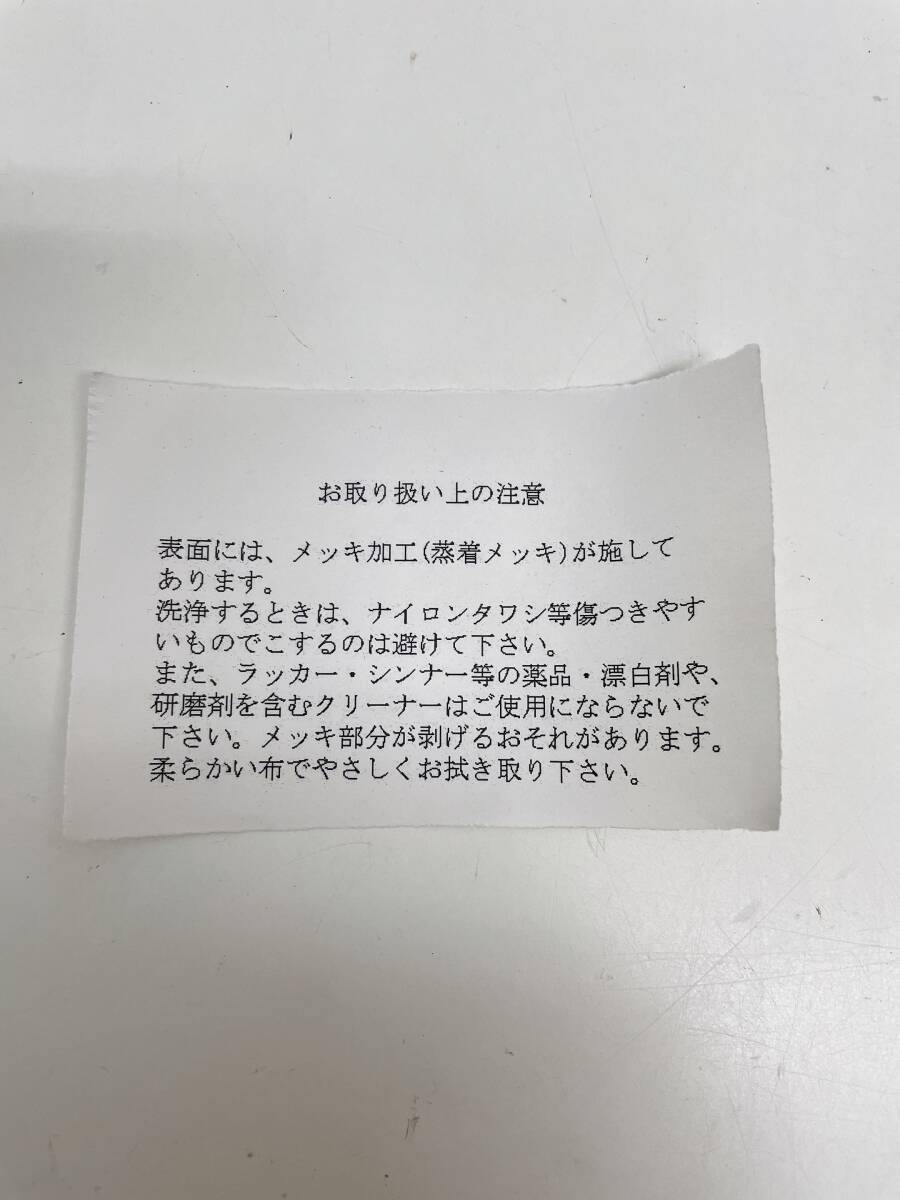 お取り扱い上の注意
表面には、メッキ加工(蒸着メッキ)が施して
あります。
洗浄するときは、ナイロンタワシ等傷つきやす
いものでこするのは避けて下さい。
また、ラッカー・シンナー等の薬品・漂白剤や、
研磨剤を含むクリーナーはご使用にならないで
下さい。メッキ部分が剥げるおそれがあります。
柔らかい布でやさしくお拭き取り下さい。